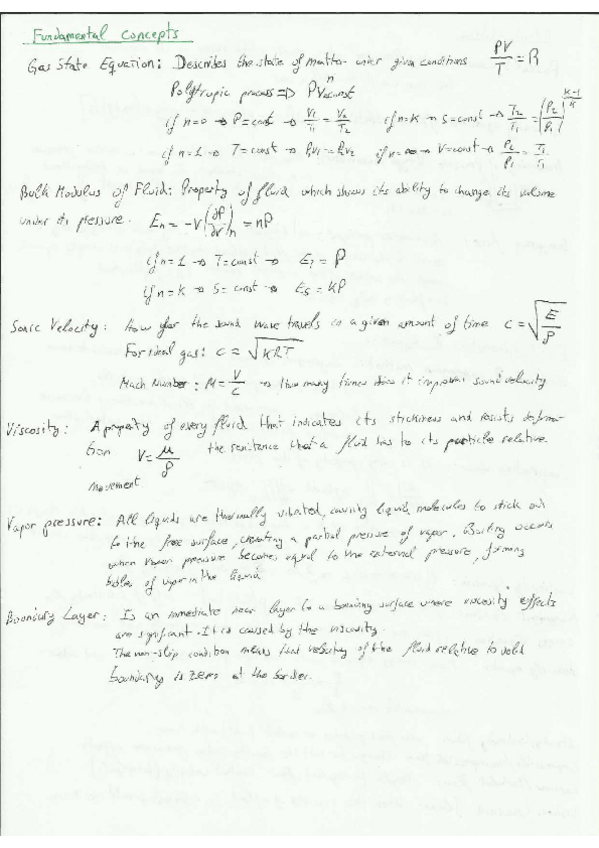 Fundamental Concepts
Gas State Equation: Describes the state of matter under given conditions PV/T = R
Polytropic process => PVⁿ=const
if n=0 → P=const → V₁/T₁ = V₂/T₂ if n=K → S=const → T₂/T₁ = (P₂/P₁)^(K-1/K)
if n=1 → T=const → P₁V₁ = P₂V₂ if n=∞ → V=const → P₂/P₁ = T₂/T₁
Bulk Modulus of Fluid: Property of fluid which shows its ability to change its volume
under its pressure. Eₙ = -V(∂P/∂V)ₙ = nP
if n=1 → T=const → E₁ = P
if n=K → S=const → Es = KP
Sonic Velocity: How far the sound wave travels in a given amount of time C = √(E/ρ)
For ideal gas: C = √KRT
Mach Number: M = V/C → how many times does it sound velocity
Viscosity: A property of every fluid that indicates its stickiness and resists deforma-
tion ν = μ/ρ the resitence that a fluid has to its particle relative
movement.
Vapor pressure: All liquids are thermally vibrated, causing liquid molecules to stick out
to the free surface, creating a partial pressure of vapor. Boiling occurs
when vapor pressure becomes equal to the external pressure, forming
of vapor in the liquid
Boundary Layer: Is an immediate near layer to a bounding surface where viscosity effects
are significant. It is caused by the viscosity.
The non-slip condition means that velocity of the fluid relative to solid
boundary is zero at the border.